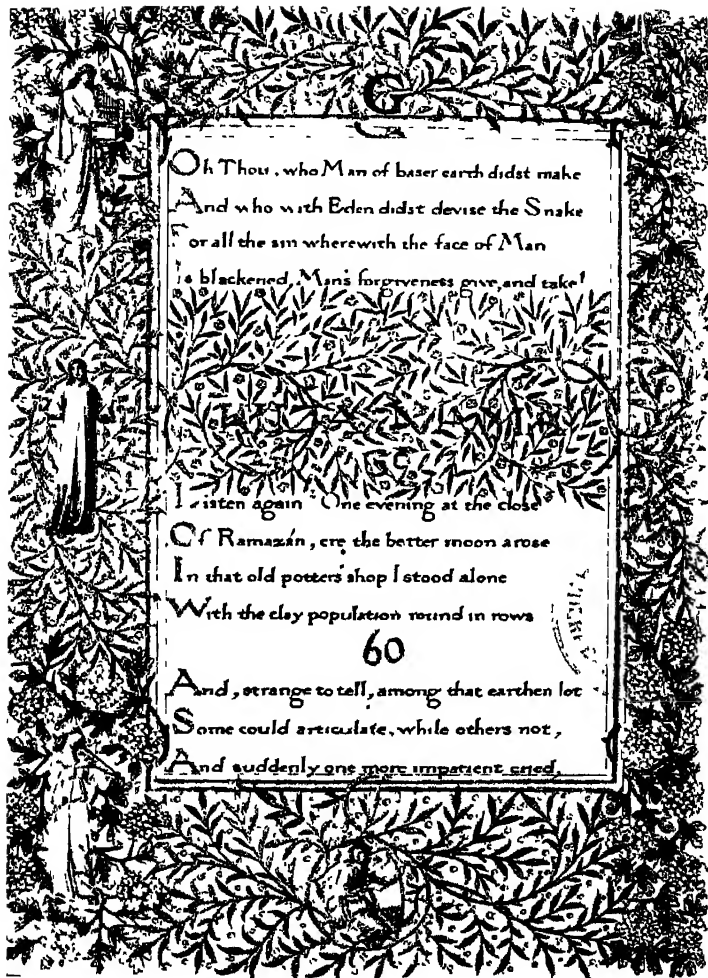 Oh Thou, who Man of baser earth didst make
And who with Eden didst devise the Snake
For all the sin wherewith the face of Man
Is blackened, Man's forgiveness give, and take!
Listen again One evening at the close
Of Ramazán, ere the better moon arose
In that old potters' shop I stood alone
With the clay population round in rows
60
And, strange to tell, among that earthen lot
Some could articulate, while others not,
And suddenly one more impatient cried,